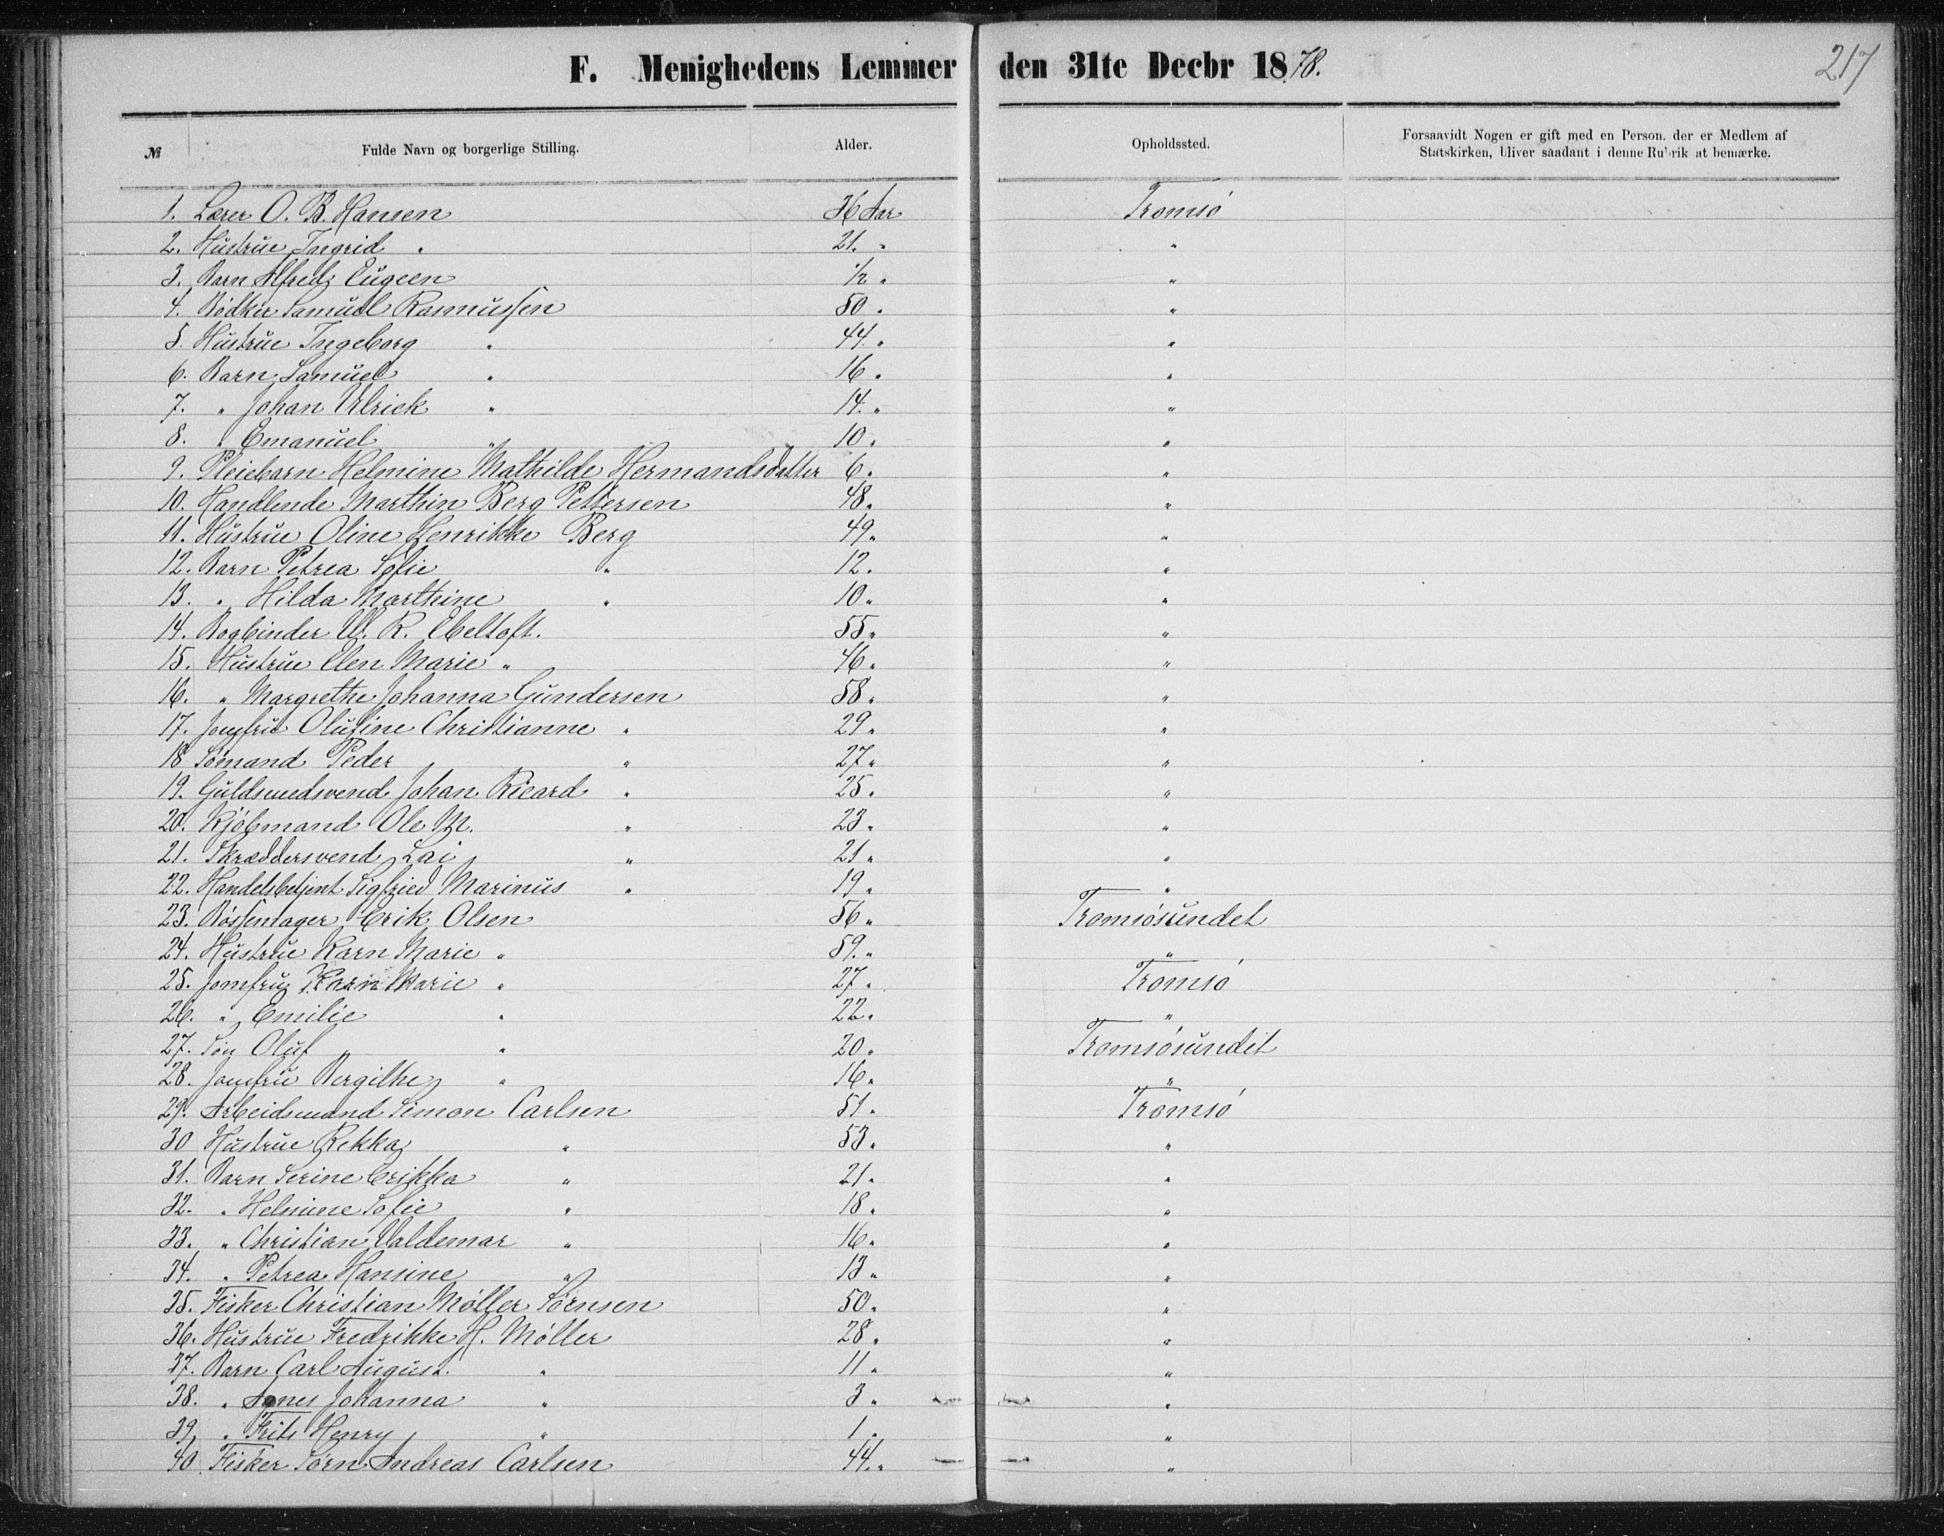 217
F. Menighedens Lemmer den 31te Decbr 1878.
№ Fulde Navn og borgerlige Stilling. Alder. Opholdssted. Forsaavidt Nogen er gift med en Person, der er Medlem af
Statskirken, bliver saadant i denne Rubrik at bemærke.
1. Lærer O. B. Hansen 36 Aar Tromsø
2. Hustrue Ingrid " 21. " "
3. Barn Alfred Eugeen ½ " "
4. Bødker Samuel Rasmussen 50 " "
5. Hustrue Ingeborg " 44 " "
6. Barn Samuel " 16 " "
7. " Johan Ulrick " 14 " "
8. " Emanuel " 10 " "
9. Pleiebarn Helmine Mathilde Hermandsdatter 6 " "
10. Handlende Marthin Berg Pettersen 48 " "
11. Hustrue Oline Henrikke Berg 49 " "
12. Barn Petrea Sofie " 12 " "
13. " Hilda Marthine " 10 " "
14. Bogbinder W. R. Ebeltoft. 55 " "
15. Hustrue Elen Marie " 46 " "
16. " Margrethe Johanna Gundersen 58 " "
17. Jomfrue Olufine Christianne " 29 " "
18 Sømand Peder " 27 " "
19. Guldsmedsvend Johan Ricard " 25 " "
20. Kjøbmand Ole M. " 23 " "
21. Skræddersvend Lai " 21 " "
22. Handelsbetjent Sigfried Marinus " 19 " "
23. Bøssemager Erik Olsen 56 " Tromsøsundet
24. Hustrue Karn Marie " 59. " "
25. Jomfru Karn Marie " 27 " Tromsø
26. " Emilie " 22 " "
27. Søn Oluf " 20 " Tromsøsundet
28. Jomfru Bergithe " 16 " "
29. Arbeidsmand Simon Carlsen 51 " Tromsø
30 Hustrue Rekka " 53 " "
31. Barn Serine Erikka " 21 " "
32. " Helmine Sofie " 18 " "
33. " Christian Valdemar " 16 " "
34. " Petrea Hansine " 13 " "
35. Fisker Christian Møller Sørnsen 50 " "
36. Hustrue Fredrikke H. Møller 28 " "
37. Barn Carl August. " 11 " "
38. " Agnes Johanna " 3 " "
39. " Frits Henry " 1 " "
40 Fisker Sørn Andreas Carlsen 44 " "